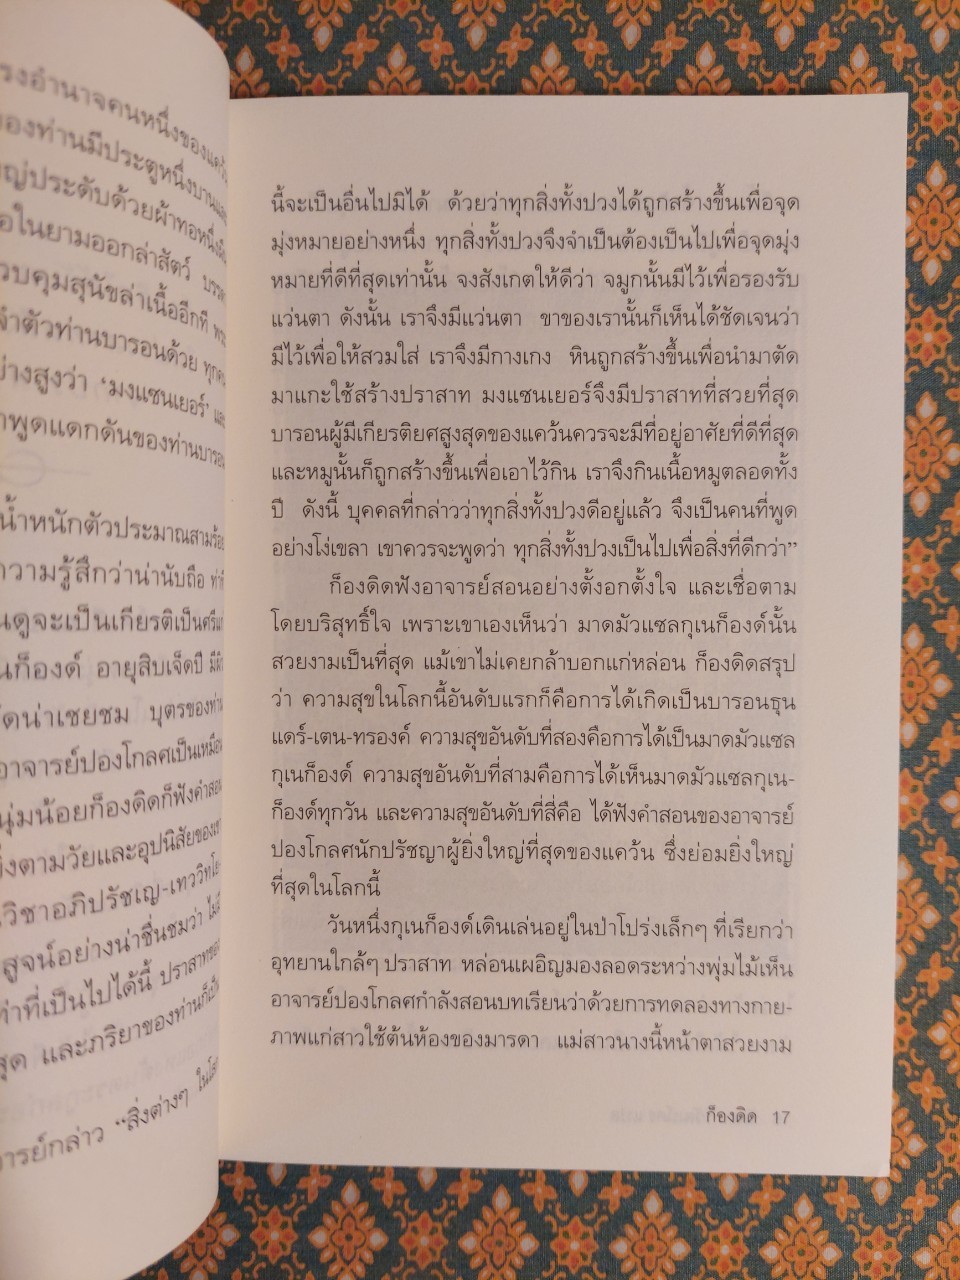 รงอำนาจคนหนึ่งของแคว้น
องท่านมีประตูหนึ่งบานและ
ญ่ประดับด้วยผ้าทอหนึ่งผืน
อในยามออกล่าสัตว์ บรรดา
วบคุมสุนัขล่าเนื้ออีกที พระ
จำตัวท่านบารอนด้วย ทุกคน
ย่างสูงว่า ‘มงแซนเยอร์’ และ
าพูดแดกดันของท่านบารอน
น้ำหนักตัวประมาณสามร้อย
ความรู้สึกว่าน่านับถือ
นดูจะเป็นเกียรติเป็นศรีแก่
นก็องด์ อายุสิบเจ็ดปี มีผิว
ัดน่าเชยชม บุตรของท่าน
อาจารย์ปองโกลศเป็นเหมือน
นุ่มน้อยก็องดิดก็ฟังคำสอน
ิ่งตามวัยและอุปนิสัยของเขา
วิชาอภิปรัชญ-เทววิทโย-
สูจน์อย่างน่าชื่นชมว่า ไม่มี
ท่าที่เป็นไปได้นี้ ปราสาทของ
สุด และภริยาของท่านก็เป็น
ารย์กล่าว “สิ่งต่างๆ ในโลก
นี้จะเป็นอื่นไปมิได้ ด้วยว่าทุกสิ่งทั้งปวงได้ถูกสร้างขึ้นเพื่อจุด
มุ่งหมายอย่างหนึ่ง ทุกสิ่งทั้งปวงจึงจำเป็นต้องเป็นไปเพื่อจุดมุ่ง
หมายที่ดีที่สุดเท่านั้น จงสังเกตให้ดีว่า จมูกนั้นมีไว้เพื่อรองรับ
แว่นตา ดังนั้น เราจึงมีแว่นตา ขาของเรานั้นก็เห็นได้ชัดเจนว่า
มีไว้เพื่อให้สวมใส่ เราจึงมีกางเกง หินถูกสร้างขึ้นเพื่อนำมาตัด
มาแกะใช้สร้างปราสาท มงแซนเยอร์จึงมีปราสาทที่สวยที่สุด
บารอนผู้มีเกียรติยศสูงสุดของแคว้นควรจะมีที่อยู่อาศัยที่ดีที่สุด
และหมูนั้นก็ถูกสร้างขึ้นเพื่อเอาไว้กิน เราจึงกินเนื้อหมูตลอดทั้ง
ปี ดังนี้ บุคคลที่กล่าวว่าทุกสิ่งทั้งปวงดีอยู่แล้ว จึงเป็นคนที่พูด
อย่างโง่เขลา เขาควรจะพูดว่า ทุกสิ่งทั้งปวงเป็นไปเพื่อสิ่งที่ดีกว่า”
ก็องดิดฟังอาจารย์สอนอย่างตั้งอกตั้งใจ และเชื่อตาม
โดยบริสุทธิ์ใจ เพราะเขาเองเห็นว่า มาดมัวแซลกุเนก็องด์นั้น
สวยงามเป็นที่สุด แม้เขาไม่เคยกล้าบอกแก่หล่อน ก็องดิดสรุป
ว่า ความสุขในโลกนี้อันดับแรกก็คือการได้เกิดเป็นบารอนธุน
แดร์-เตน-ทรองค์ ความสุขอันดับที่สองคือการได้เป็นมาดมัวแซล
กุเนก็องด์ ความสุขอันดับที่สามคือการได้เห็นมาดมัวแซลกุเน-
ก็องด์ทุกวัน และความสุขอันดับที่สี่คือ ได้ฟังคำสอนของอาจารย์
ปองโกลศนักปรัชญาผู้ยิ่งใหญ่ที่สุดของแคว้น ซึ่งย่อมยิ่งใหญ่
ที่สุดในโลกนี้
วันหนึ่งกุเนก็องด์เดินเล่นอยู่ในป่าโปร่งเล็กๆ ที่เรียกว่า
อุทยานใกล้ๆ ปราสาท หล่อนเผอิญมองลอดระหว่างพุ่มไม้เห็น
อาจารย์ปองโกลศกำลังสอนบทเรียนว่าด้วยการทดลองทางกาย-
ภาพแก่สาวใช้ต้นห้องของมารดา แม่สาวนางนี้หน้าตาสวยงาม
ก็องดิด 17